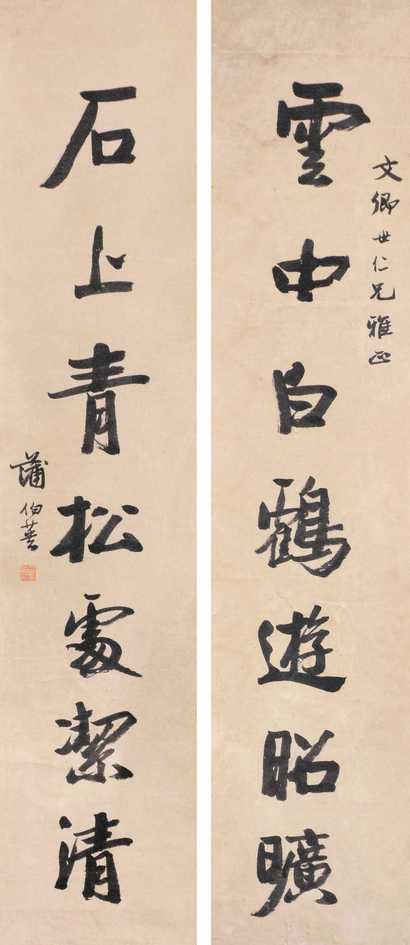 文卿世仁兄雅正
雲中白鶴遊昭曠
石上青松處潔清
蒲伯英